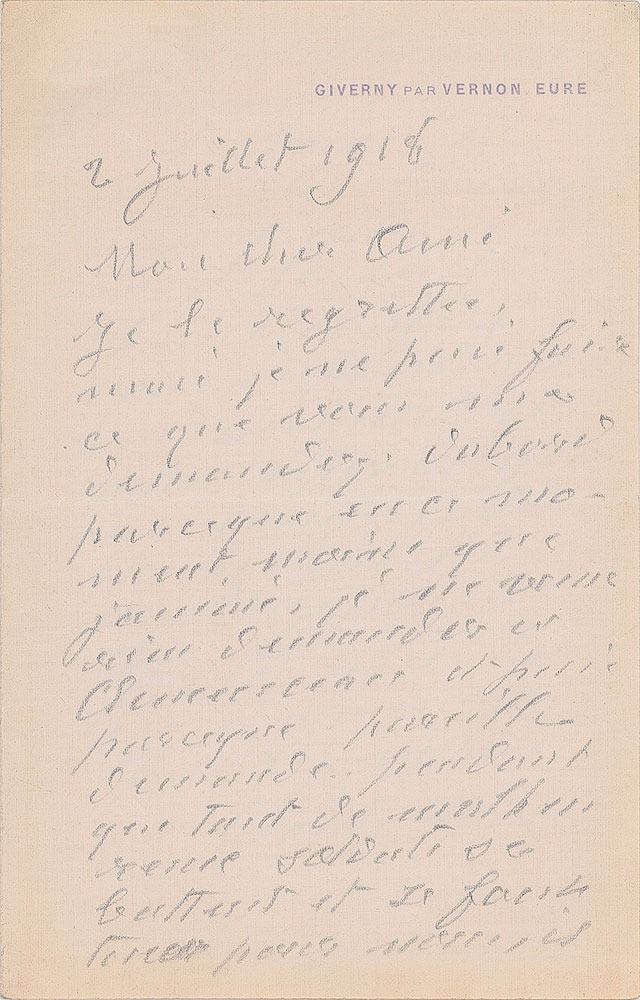 GIVERNY PAR VERNON. EURE
2 Juillet 1918
Mon cher Ami
Je le regrette,
mais je ne puis faire
ce que vous me
demandez. Dabord
parceque en ce mo-
ment, moins que
jamais, je ne veux
rien demander a
Clemenceau et puis
parceque pareille
demande. pendant
que tant de malheu
reux soldats se
battent et se font
tuer pour nous, is